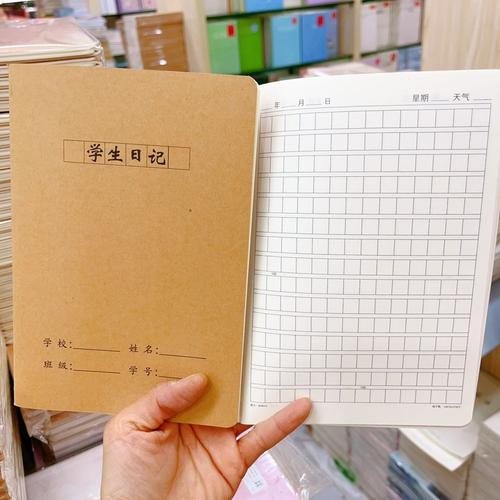 学生日记
学校：______ 姓名：______
班级：______ 学号：______
年 月 日 星期 天气